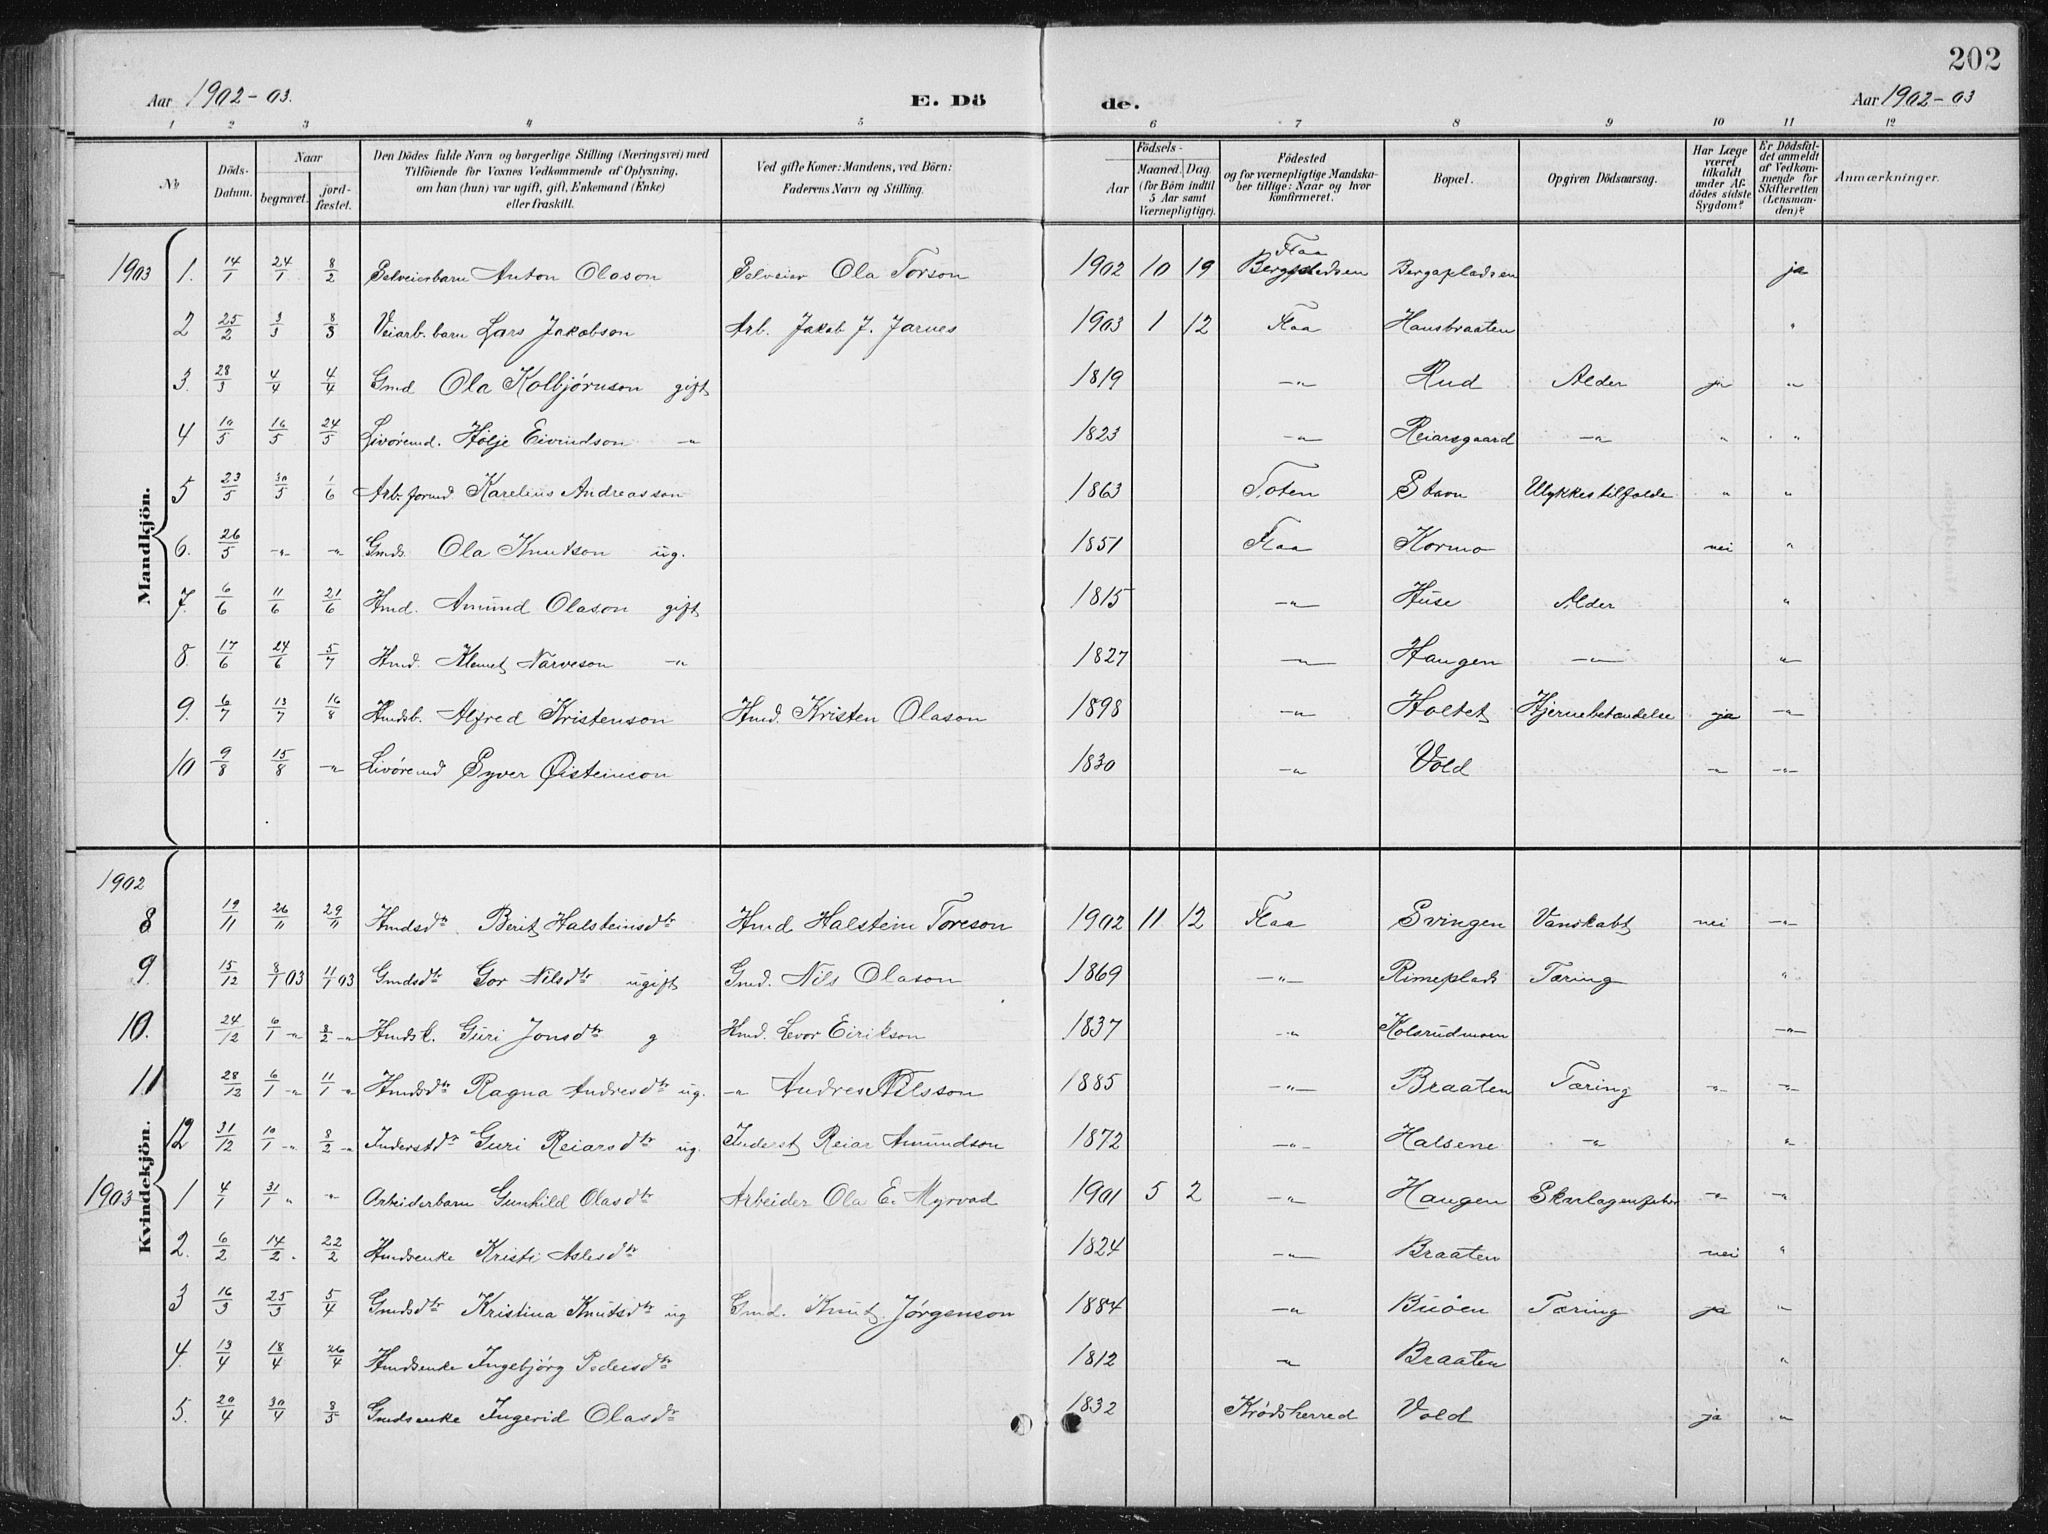 202
Aar 1902-03. E. Dö de. Aar 1902-03
1 2 3 4 5 6 7 8 9 10 11 12
No Döds-Datum. Naar begravet. jordfæstet. Den Dödes fulde Navn og borgerlige Stilling (Næringsvei) med Tilföiende for Voxnes Vedkommende af Oplysning, om han (hun) var ugift, gift, Enkemand (Enke) eller fraskilt. Ved gifte Koner: Mandens, ved Börn: Faderens Navn og Stilling. Födsels- Aar Maaned. Dag (for Börn indtil 5 Aar samt Værnepligtige). Födested og for værnepligtige Mandskaber tillige: Naar og hvor konfirmeret. Bopæl. Opgiven Dödsaarsag. Har Læge været tilkaldt under Afdödes sidste Sygdom? Er Dödsfaldet anmeldt af Vedkommende for Skifteretten (Lensmanden)? Anmærkninger.
Mandkjön.
1903 1. 14/1 24/1 8/2 Selveierbarn Anton Olason Selveier Ola Torson 1902 10 19 Flaa Bergspladsen Bergapladsen ja
2 25/2 3/3 8/3 Veiarb. barn Lars Jakobson Arb. Jakob J. Jarnes 1903 1 12 Flaa Hansbraaten "
3. 28/3 4/4 4/4 Gmd Ola Kolbjørnson gift 1819 -"- Rud Alder ja -"-
4 10/5 16/5 24/5 Livøremd. Hølje Eivindson -"- 1823 -"- Reiarsgaard -"- " "
5 23/5 30/5 1/6 Arb. formd Karelius Andreasson 1863 Toten Stavn Ulykkestilfælde " "
6. 26/5 -"- -"- Gmds. Ola Knutson ug. 1851 Flaa Kormo nei "
7. 6/6 11/6 21/6 Hmd. Amund Olason gift 1815 -"- Huse Alder "
8. 17/6 24/6 5/7 Hmd. Klemet Narveson -"- 1827 -"- Haugen -"- "
9. 6/7 13/7 16/8 Hmdsb. Alfred Kristenson Hmd. Kristen Olason 1898 -"- Holtet Hjernebetændelse ja -"-
10 9/8 15/8 -"- Livøremd Syver Øisteinson 1830 -"- Vold -"- -"-
Kvindekjön.
1902
8 19/11 26/11 29/11 Hmdsdtr. Berit Halsteinsdtr Hmd Halstein Toreson 1902 11 12 Flaa Svingen Vanskabt nei -"-
9. 15/12 8/1 03 11/1 03 Gmdsdtr Gor Nilsdtr ugift Gmd. Nils Olason 1869 -"- Rimeplads Tæring "
10. 24/12 6/1 -"- 8/2 -"- Hmdsk. Guri Jonsdtr g Hmd. Levor Eirikson 1837 -"- Kolsrudmoen -"-
11 28/12 6/1 -"- 11/1 -"- Hmdsdtr Ragna Andresdtr ug. -"- Andres Nilsson 1885 -"- Braaten Tæring -"- -"-
12 31/12 10/1 -"- 8/2 -"- Inderstdtr Guri Reiarsdtr ug. Inderst Reiar Amundson 1872 -"- Halsene -"- "
1903 1 4/1 31/1 " -"- Arbeiderbarn Gunhild Olasdtr Arbeider Ola E. Myrvad 1901 5 2 -"- Haugen Skarlagensfeber -"- -"-
2. 6/2 14/2. 22/2 Hmdsenke Kristi Aslesdtr 1824 -"- Braaten nei "
3 16/3 25/3 5/4 Gmdsdtr Kristina Knutsdtr ug Gmd. Knut Jørgenson 1884 -"- Buøen Tæring ja "
4. 13/4 18/4 26/4 Hmdsenke Ingebjørg Pedersdtr 1812 -"- Braaten "
5. 20/4 30/4 8/5 Gmdsenke Ingerid Olasdtr 1832 Krødsherred Vold ja "